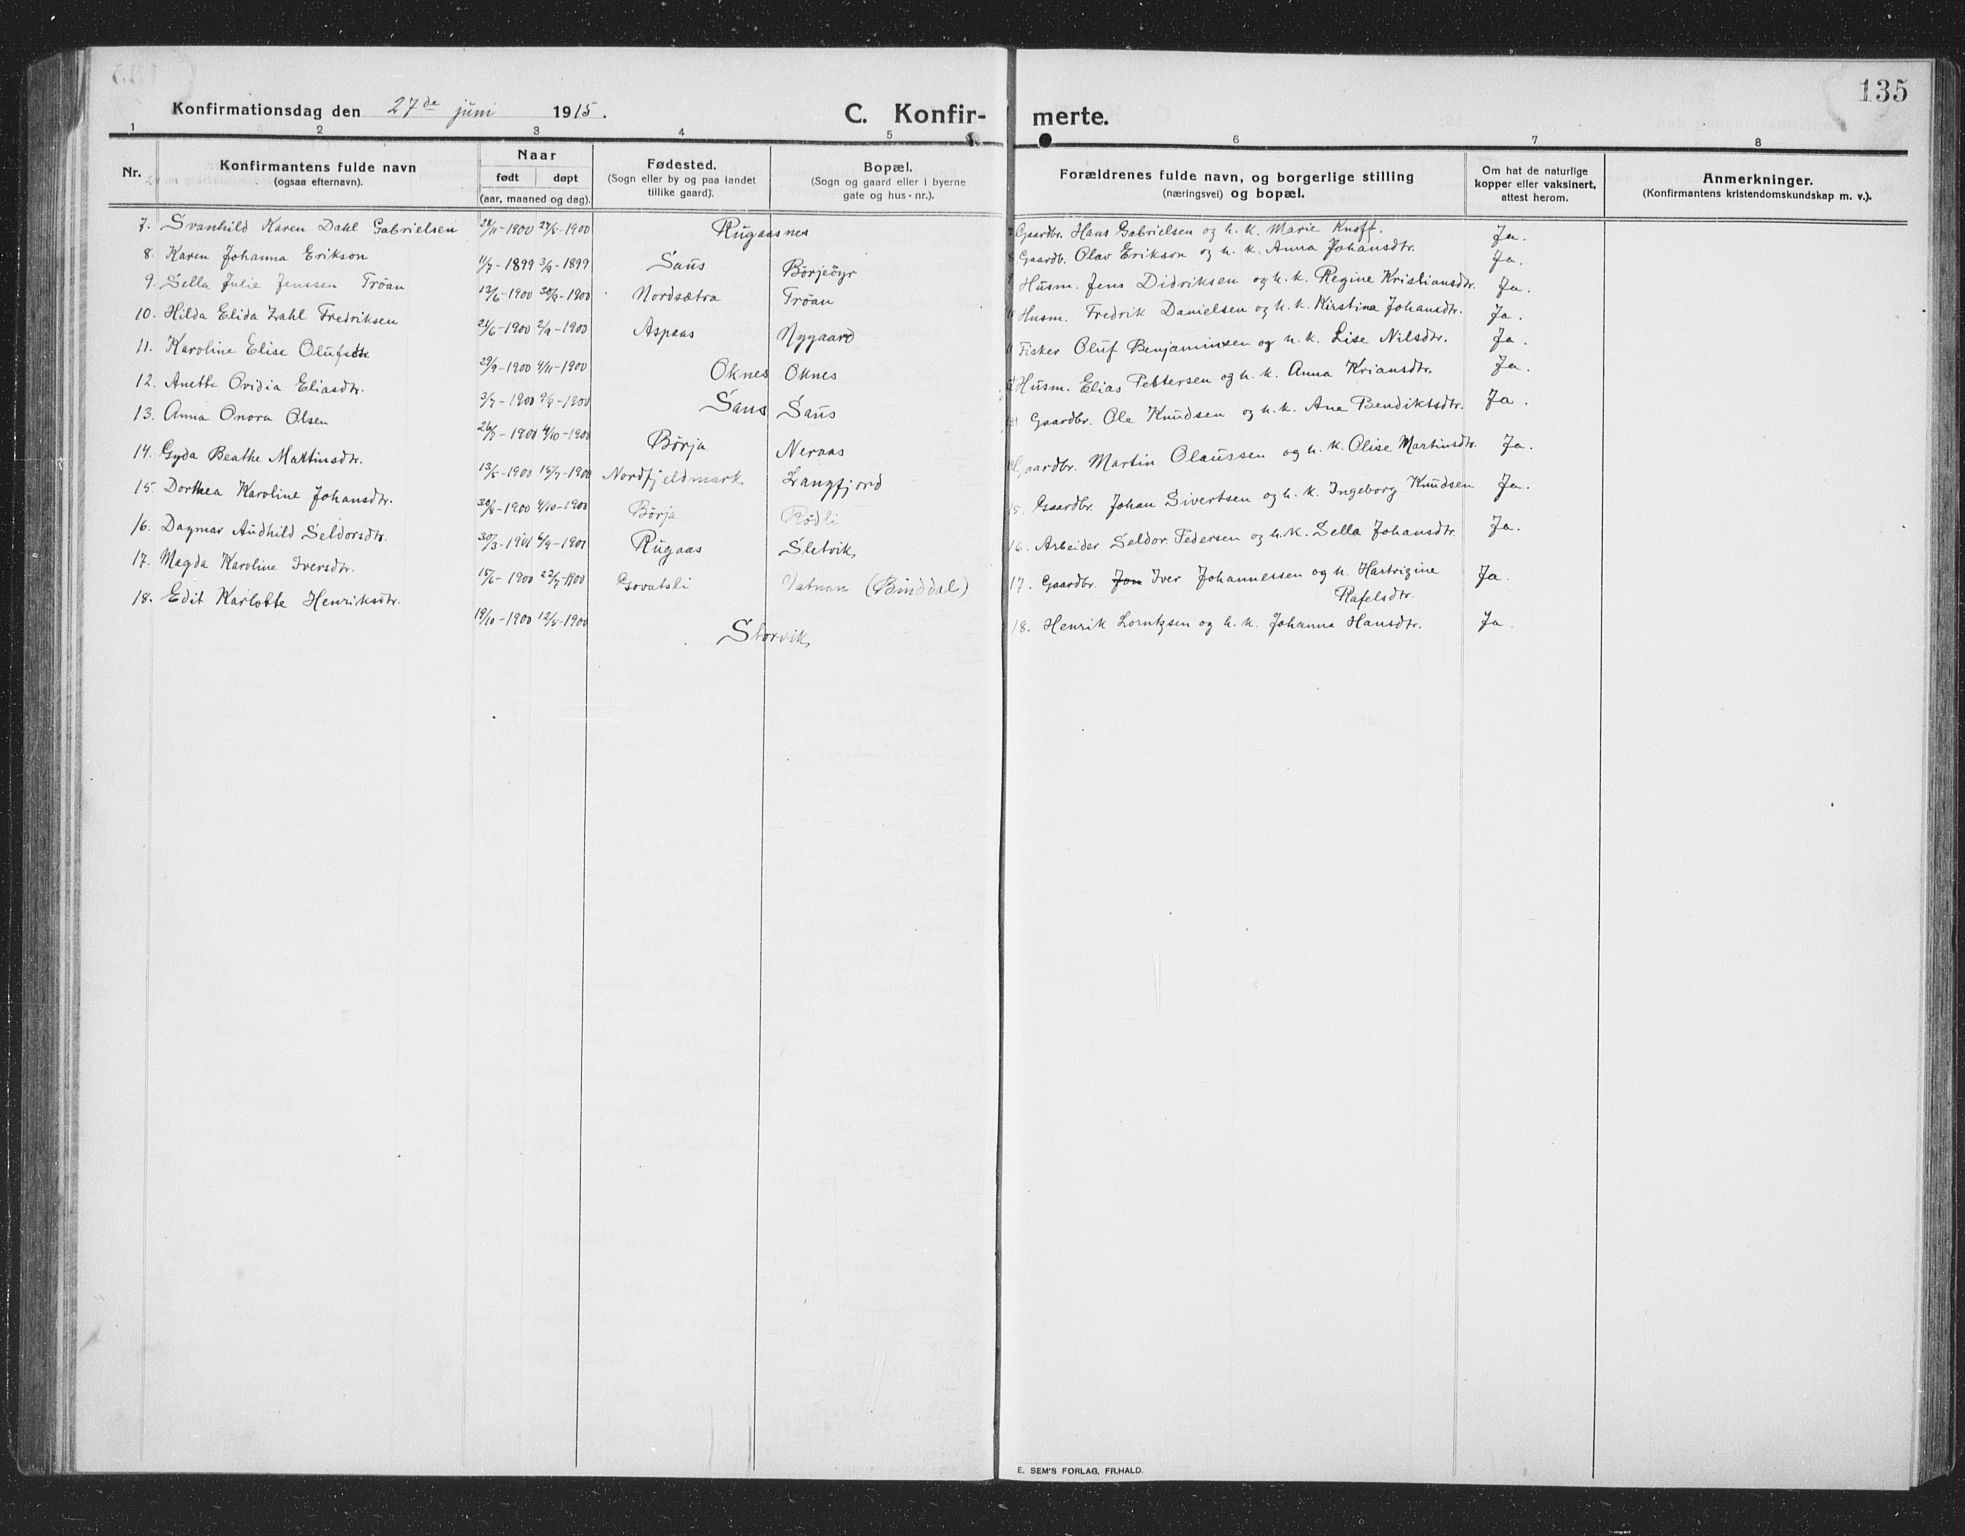 135
Konfirmationsdag den 27de juni 1915.
C. Konfir- merte.
1 2 3 4 5 6 7 8
Nr.
Konfirmantens fulde navn
(ogsaa efternavn).
Naar
født døpt
(aar, maaned og dag).
Fødested.
(Sogn eller by og paa landet
tillike gaard).
Bopæl.
(Sogn og gaard eller i byerne
gate og hus-nr.).
Forældrenes fulde navn, og borgerlige stilling
(næringsvei) og bopæl.
Om hat de naturlige
kopper eller vaksinert,
attest herom.
Anmerkninger.
(Konfirmantens kristendomskundskap m. v.).
7. Svanhild Karen Dahl Gabrielsen 1900 1900 Rugaasnes Gaardbr. Hans Gabrielsen og h. k. Marie Knoff. Ja.
8. Karen Johanna Erikson 11/7-1899 3/9-1899 Saus Børjeöyr Gaardb. Olav Erikson og h. k. Anna Johansdtr. Ja.
9. Sella Julie Jenssen Trøan 13/6-1900 1900 Nordsætra Trøan Husm. Jens Didriksen og h. k. Regine Kristiansdtr. Ja.
10. Hilda Elida Zahl Fredriksen 21/6-1900 2/9-1900 Aspaas Nygaard Husm. Fredrik Danielsen og h. k. Kirstina Johansdtr. Ja.
11. Karoline Elise Olufsen 29/9-1900 4/11-1900 Oknes Oknes Fisker Oluf Benjaminsen og h. k. Lise Nilsdtr. Ja.
12. Anette Ovidia Eliasdtr. 3/7-1900 9/9-1900 Saus Saus Husm. Elias Pettersen og h. k. Anna Kriansdtr. Ja.
13. Anna Onora Olsen 1900 4/10-1900 Børja Neraas Gaardbr. Ole Knudsen og h. k. Ane Bendiktsdtr. Ja.
14. Gyda Beathe Martinsdtr. 1900 1900 Nordfjeldmark Langfjord Gaardbr. Martin Olaussen og h. k. Olise Martinsdtr. Ja.
15. Dorthea Karoline Johansdtr. 1900 4/10-1900 Børja Rødli 15. Gaardbr. Johan Sivertsen og h. k. Ingeborg Knudsen Ja.
16. Dagmar Audhild Seldorsdtr. 30/3-1901 1901 Rugaas Sletvik 16. Arbeider Seldor Pedersen og h. k. Sella Johansdtr. Ja.
17. Magda Karoline Iversdtr. 15/6-1900 22/7-1900 Govatsli Vatnan (Binddal) 17. Gaardbr. Jon Iver Johannessen og h. Hartvigine
Rafelsdtr. Ja.
18. Edit Karlotte Henriksdtr. 19/10-1900 1900 Storvik 18. Henrik Lorntzsen og h. k. Johanna Hansdtr. Ja.
E. SEM'S FORLAG, FR.HALD.